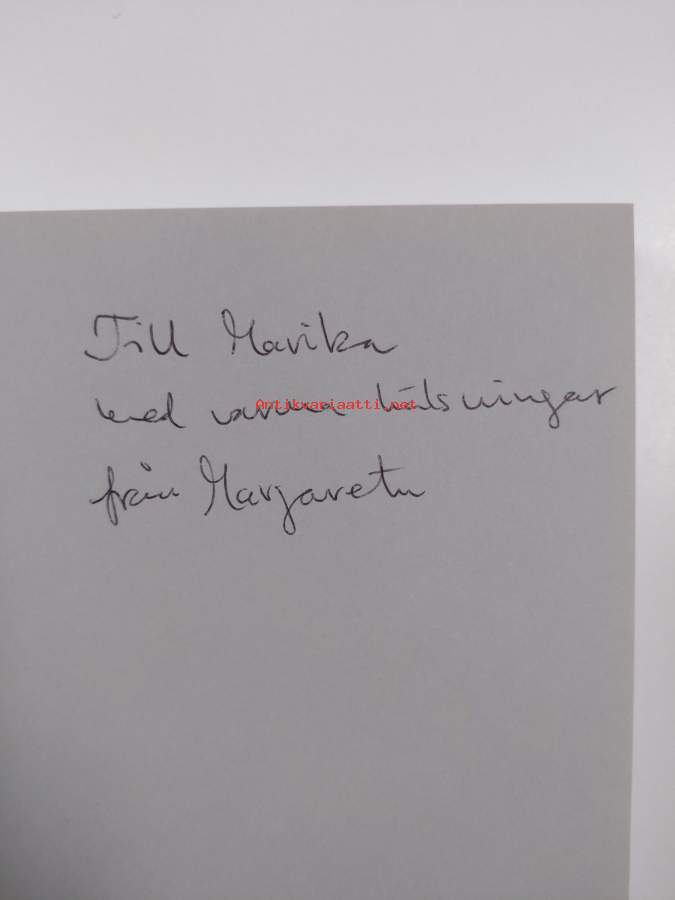 Till Marika
med varma hälsningar
från Margareta
Antikvariaatti.net